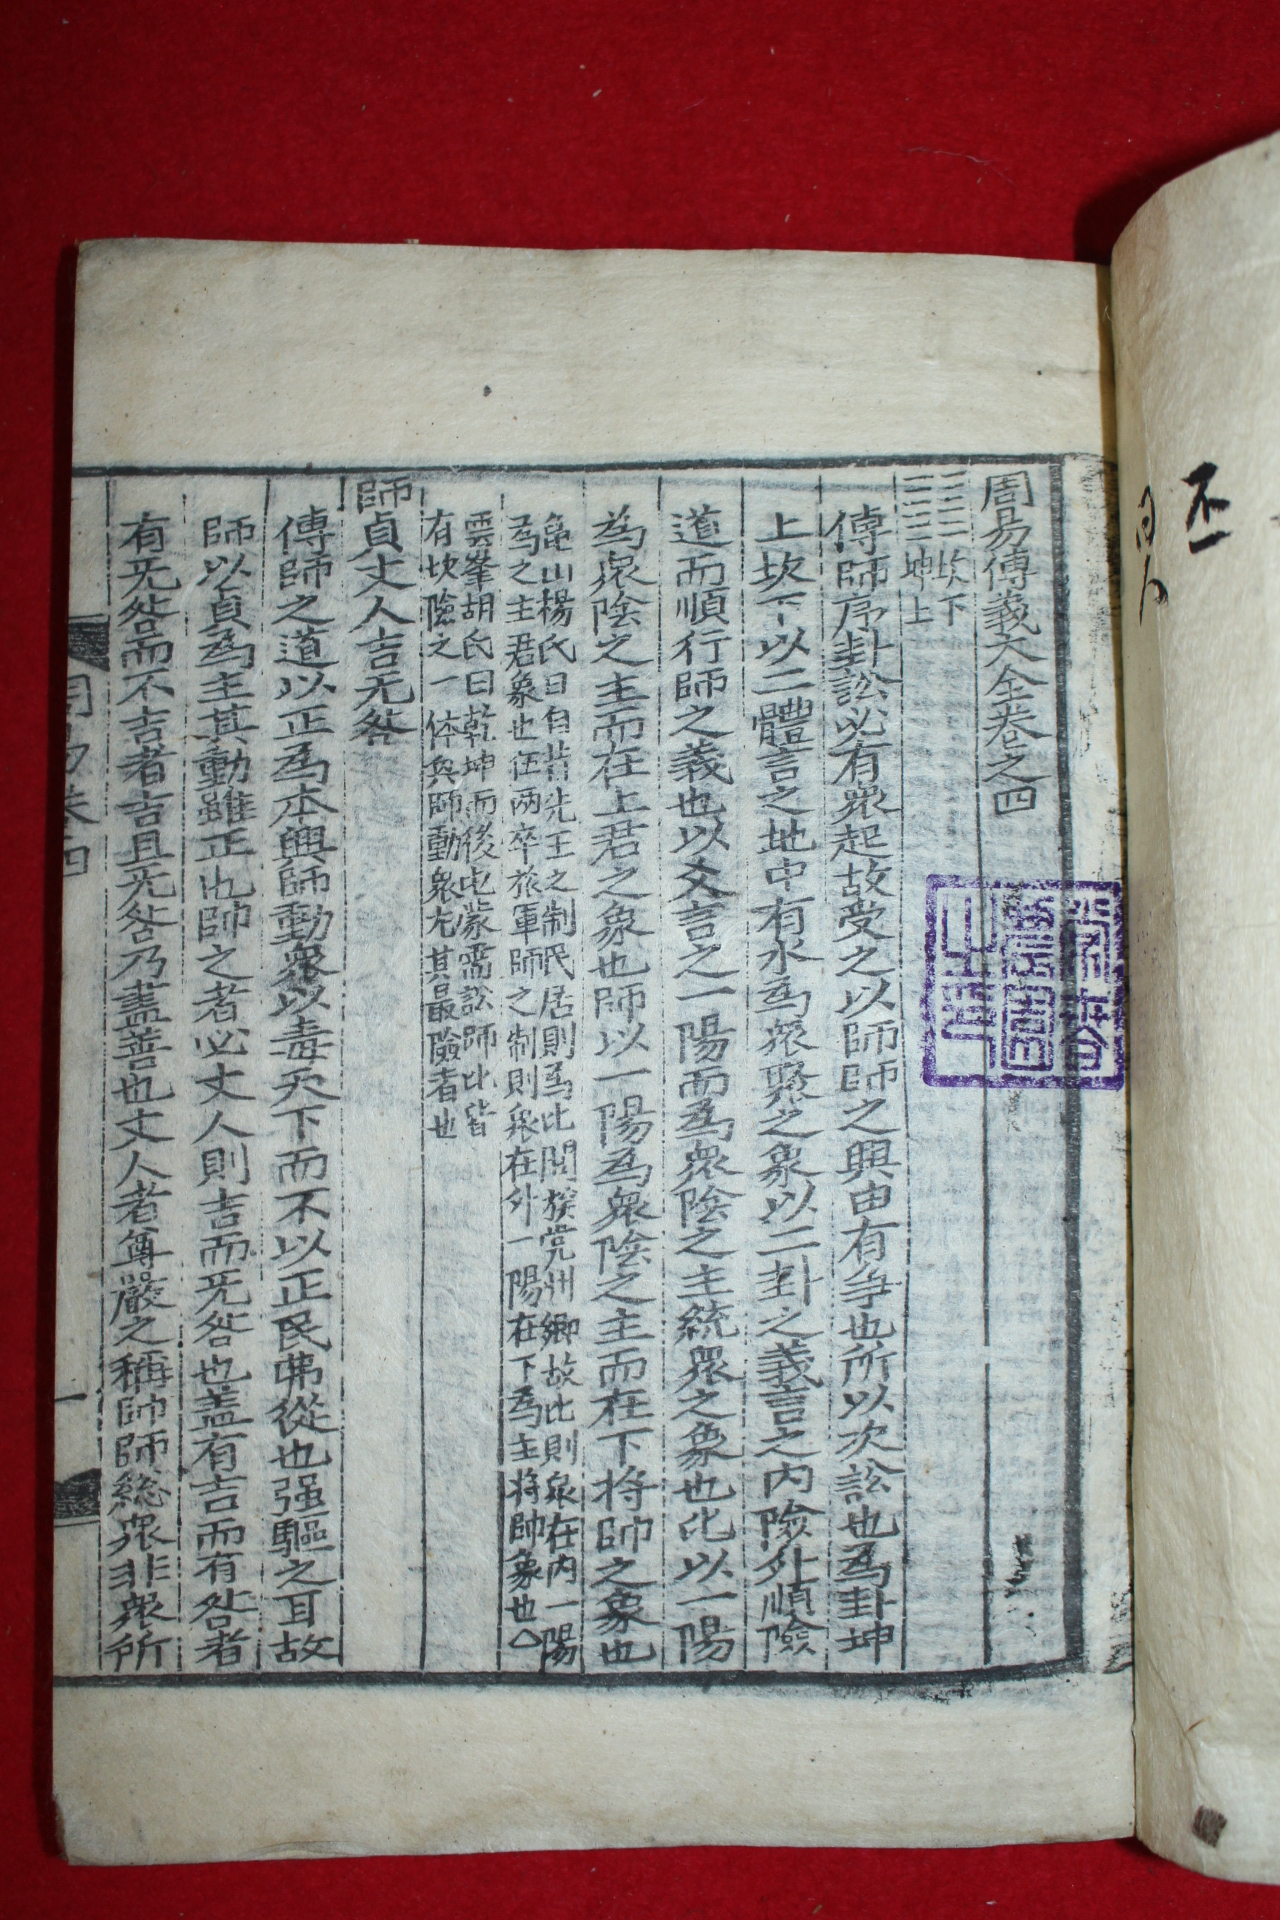 周易傳義大全卷之四
坎下
坤上
傳師序卦訟必有衆起故受之以師師之興由有爭也所以次訟也爲卦坤
上坎下以二體言之地中有水爲衆聚之象以二卦之義言之內險外順險
道而順行師之義也以爻言之一陽而爲衆陰之主統衆之象也比以一陽
爲衆陰之主而在上君之象也師以一陽爲衆陰之主而在下将帥之象也
龜山楊氏曰自昔先王之制民居則爲比閭族党州鄉故比則衆在內一陽
爲之主君象也伍两卒旅軍師之制則衆在外一陽在下爲主将帥象也△
雲峯胡氏曰乾坤而後屯蒙需訟師比皆
有坎險之一体與師動衆尤其最險者也
師貞丈人吉无咎
傳師之道以正爲本興師動衆以毒天下而不以正民弗從也强驅之耳故
師以貞爲主其動雖正也帥之者必丈人則吉而无咎也盖有吉而有咎者
有无咎而不吉者吉且无咎乃盡善也丈人者尊嚴之稱帥師緫衆非衆所
周易卷四
一